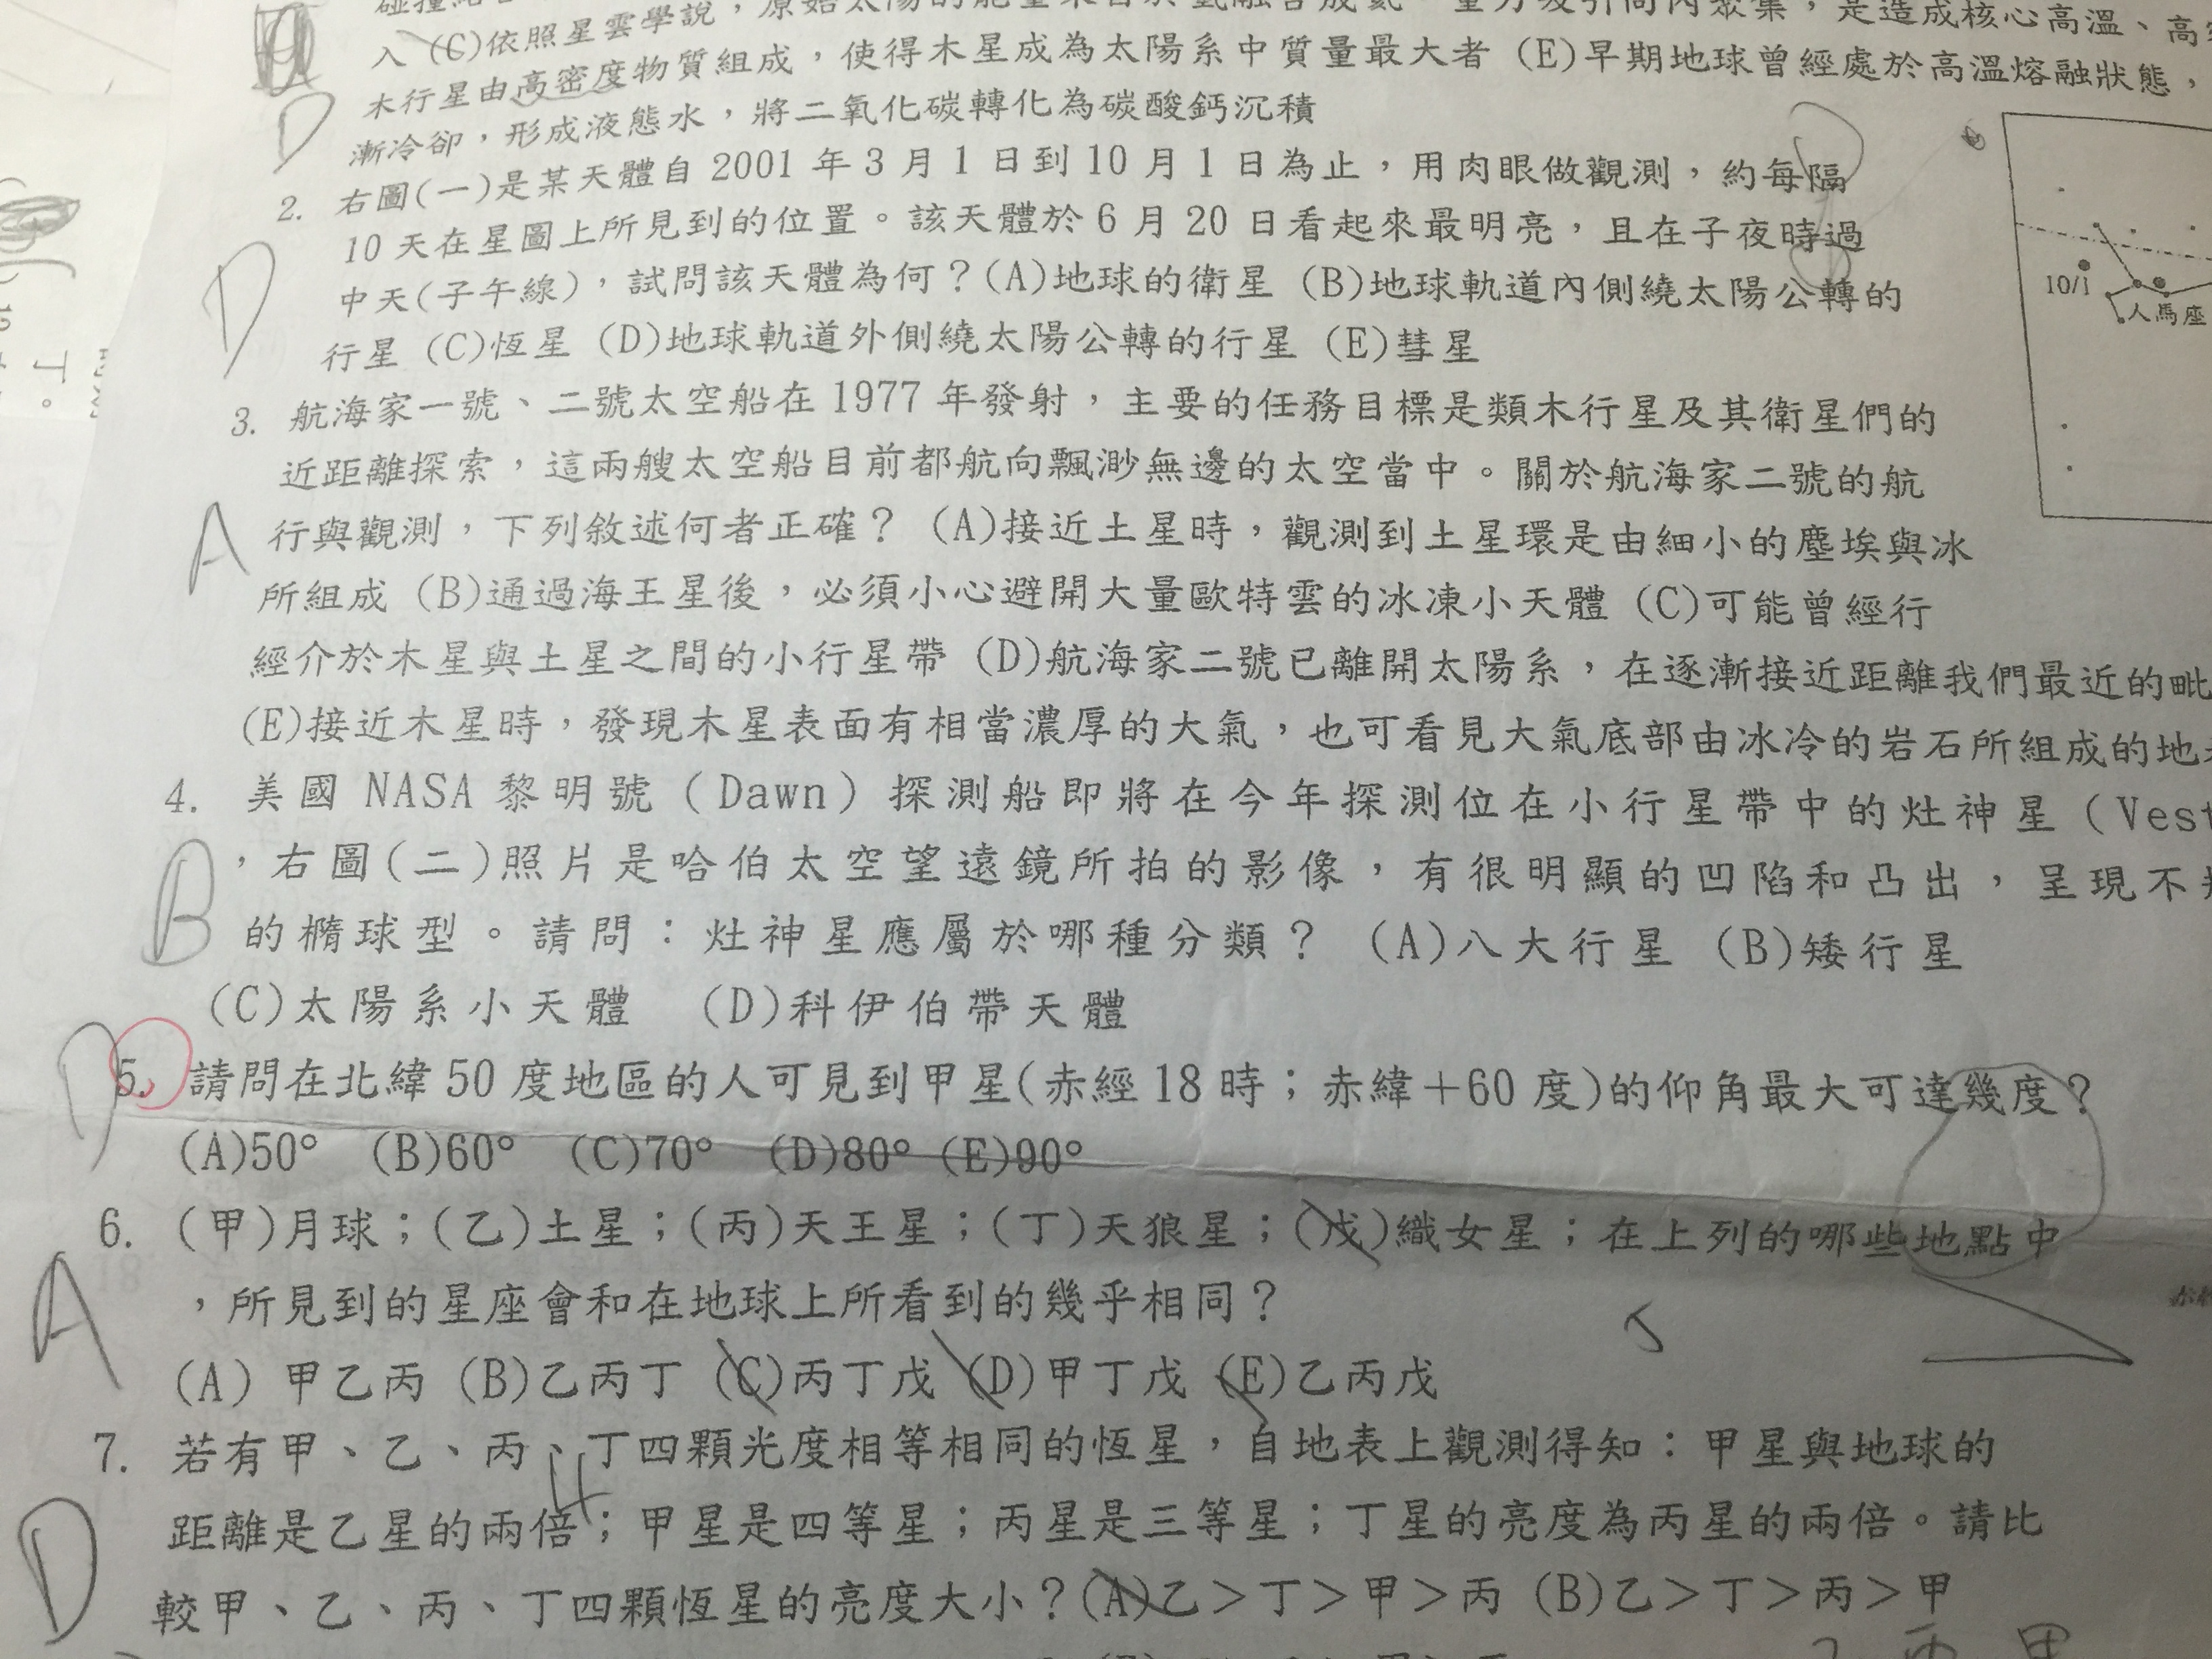 入 (C)依照星雲學說，原始太陽的能量來自於氫融合成氦 重力吸引向內聚集，是造成核心高溫、高
木行星由高密度物質組成，使得木星成為太陽系中質量最大者 (E)早期地球曾經處於高溫熔融狀態，
漸冷卻，形成液態水，將二氧化碳轉化為碳酸鈣沉積
D
2. 右圖(一)是某天體自 2001 年 3 月 1 日到 10 月 1 日為止，用肉眼做觀測，約每隔
10 天在星圖上所見到的位置。該天體於 6 月 20 日看起來最明亮，且在子夜時過
中天(子午線)，試問該天體為何？(A)地球的衛星 (B)地球軌道內側繞太陽公轉的
行星 (C)恆星 (D)地球軌道外側繞太陽公轉的行星 (E)彗星
D
10/1
人馬座
3. 航海家一號、二號太空船在 1977 年發射，主要的任務目標是類木行星及其衛星們的
近距離探索，這兩艘太空船目前都航向飄渺無邊的太空當中。關於航海家二號的航
行與觀測，下列敘述何者正確？ (A)接近土星時，觀測到土星環是由細小的塵埃與冰
所組成 (B)通過海王星後，必須小心避開大量歐特雲的冰凍小天體 (C)可能曾經行
經介於木星與土星之間的小行星帶 (D)航海家二號已離開太陽系，在逐漸接近距離我們最近的毗
(E)接近木星時，發現木星表面有相當濃厚的大氣，也可看見大氣底部由冰冷的岩石所組成的地
A
4. 美國 NASA 黎明號（Dawn）探測船即將在今年探測位在小行星帶中的灶神星（Vest
，右圖(二)照片是哈伯太空望遠鏡所拍的影像，有很明顯的凹陷和凸出，呈現不
的橢球型。請問：灶神星應屬於哪種分類？ (A)八大行星 (B)矮行星
(C)太陽系小天體 (D)科伊伯帶天體
B
5. 請問在北緯 50 度地區的人可見到甲星(赤經 18 時；赤緯＋60 度)的仰角最大可達幾度？
(A)50° (B)60° (C)70° (D)80° (E)90°
D
6. (甲)月球；(乙)土星；(丙)天王星；(丁)天狼星；(戊)織女星；在上列的哪些地點中
，所見到的星座會和在地球上所看到的幾乎相同？
(A) 甲乙丙 (B)乙丙丁 (C)丙丁戊 (D)甲丁戊 (E)乙丙戊
A
7. 若有甲、乙、丙、丁四顆光度相等相同的恆星，自地表上觀測得知：甲星與地球的
距離是乙星的兩倍；甲星是四等星；丙星是三等星；丁星的亮度為丙星的兩倍。請比
較甲、乙、丙、丁四顆恆星的亮度大小？(A)乙＞丁＞甲＞丙 (B)乙＞丁＞丙＞甲
D
丙 甲